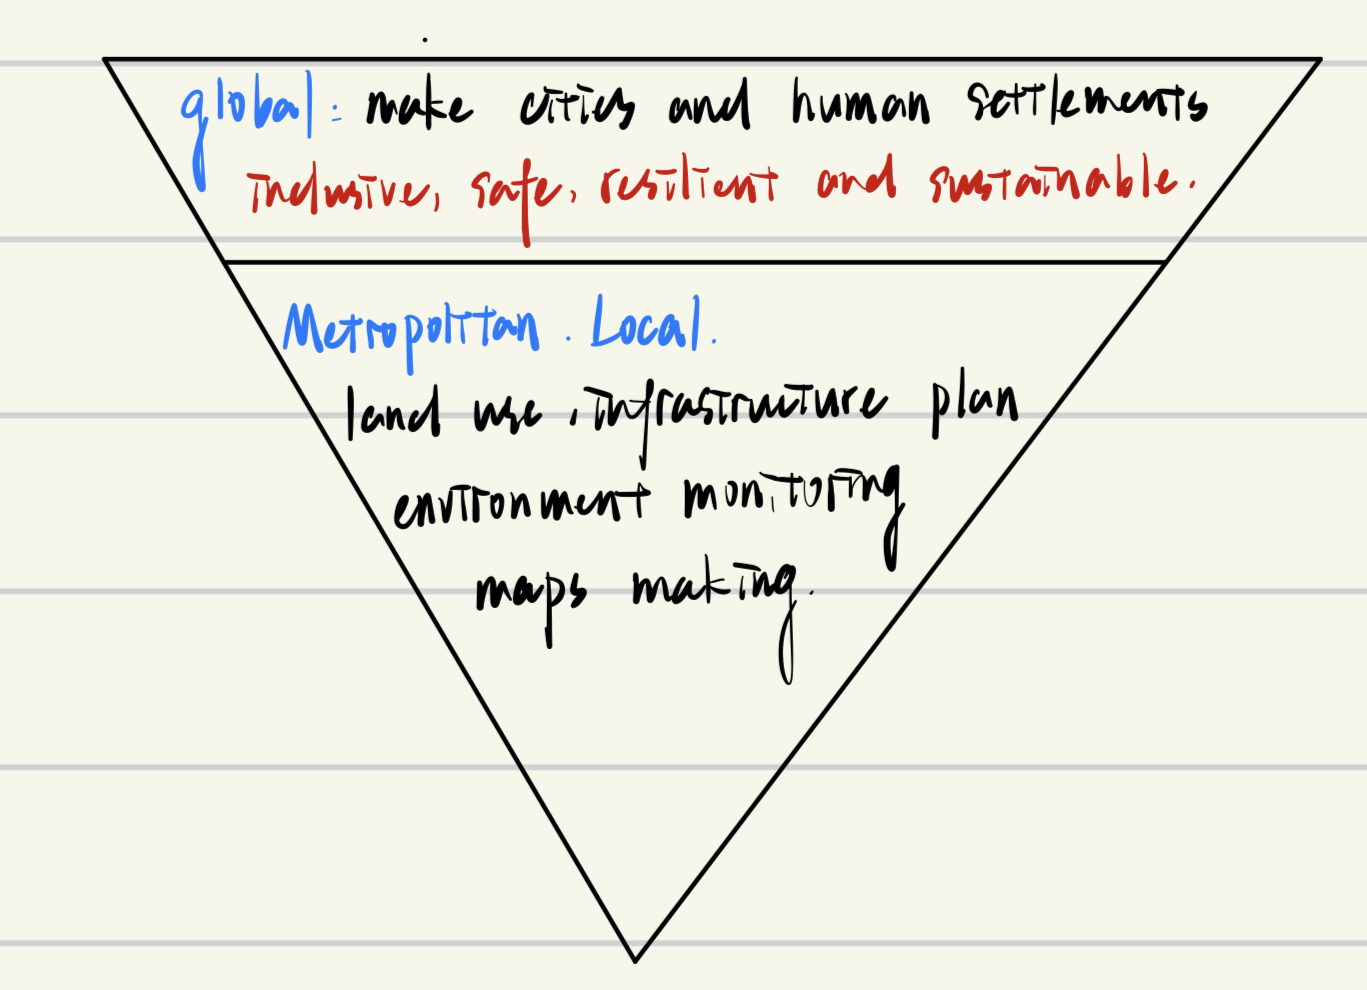 global: make cities and human settlements
inclusive, safe, resilient and sustainable.
Metropolitan. Local.
land use, infrastructure plan
environment monitoring
maps making.